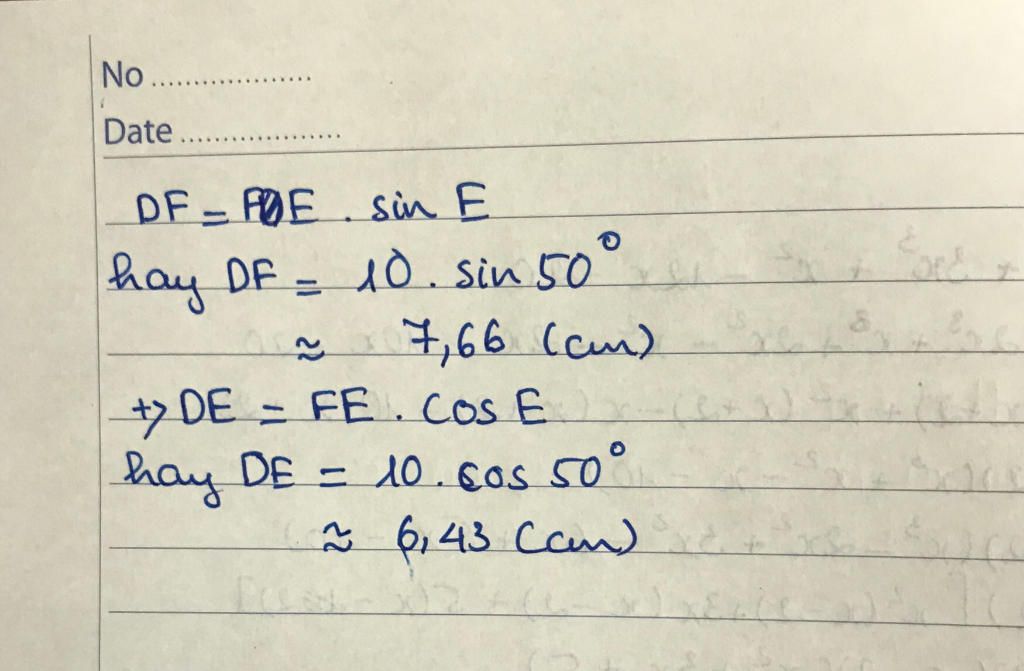 No ...................
Date ...................
DF = FE . sin E
hay DF = 10 . sin 50°
≈ 7,66 (cm)
+> DE = FE . cos E
hay DE = 10 . cos 50°
≈ 6,43 (cm)